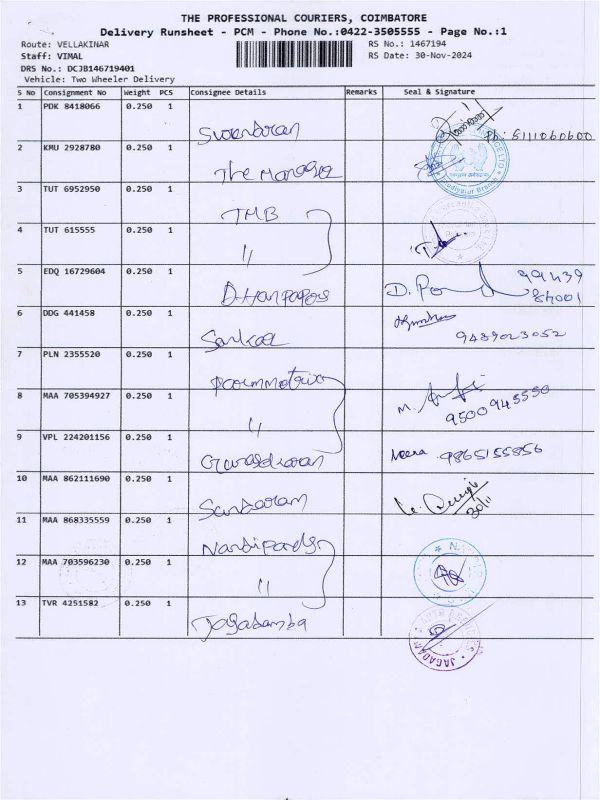 THE PROFESSIONAL COURIERS, COIMBATORE
Delivery Runsheet - PCM - Phone No.:0422-3505555 - Page No.:1
Route: VELLAKINAR
RS No.: 1467194
Staff: VIMAL
RS Date: 30-Nov-2024
DRS No.: DCJB146719401
Vehicle: Two Wheeler Delivery
S No Consignment No Weight PCS Consignee Details Remarks Seal & Signature
1 PDK 8418066 0.250 1
Ph: 8111060600
2 KMU 2928780 0.250 1
The Manager
3 TUT 6952950 0.250 1
TMB
4 TUT 615555 0.250 1
"
5 EDQ 16729604 0.250 1
99439
84001
6 DDG 441458 0.250 1
9489023052
7 PLN 2355520 0.250 1
8 MAA 705394927 0.250 1
"
9500945550
9 VPL 224201156 0.250 1
Meena 9865155856
10 MAA 862111690 0.250 1
Sankaran
30/11
11 MAA 868335559 0.250 1
12 MAA 703596230 0.250 1
"
13 TVR 4251582 0.250 1
Jagadamba